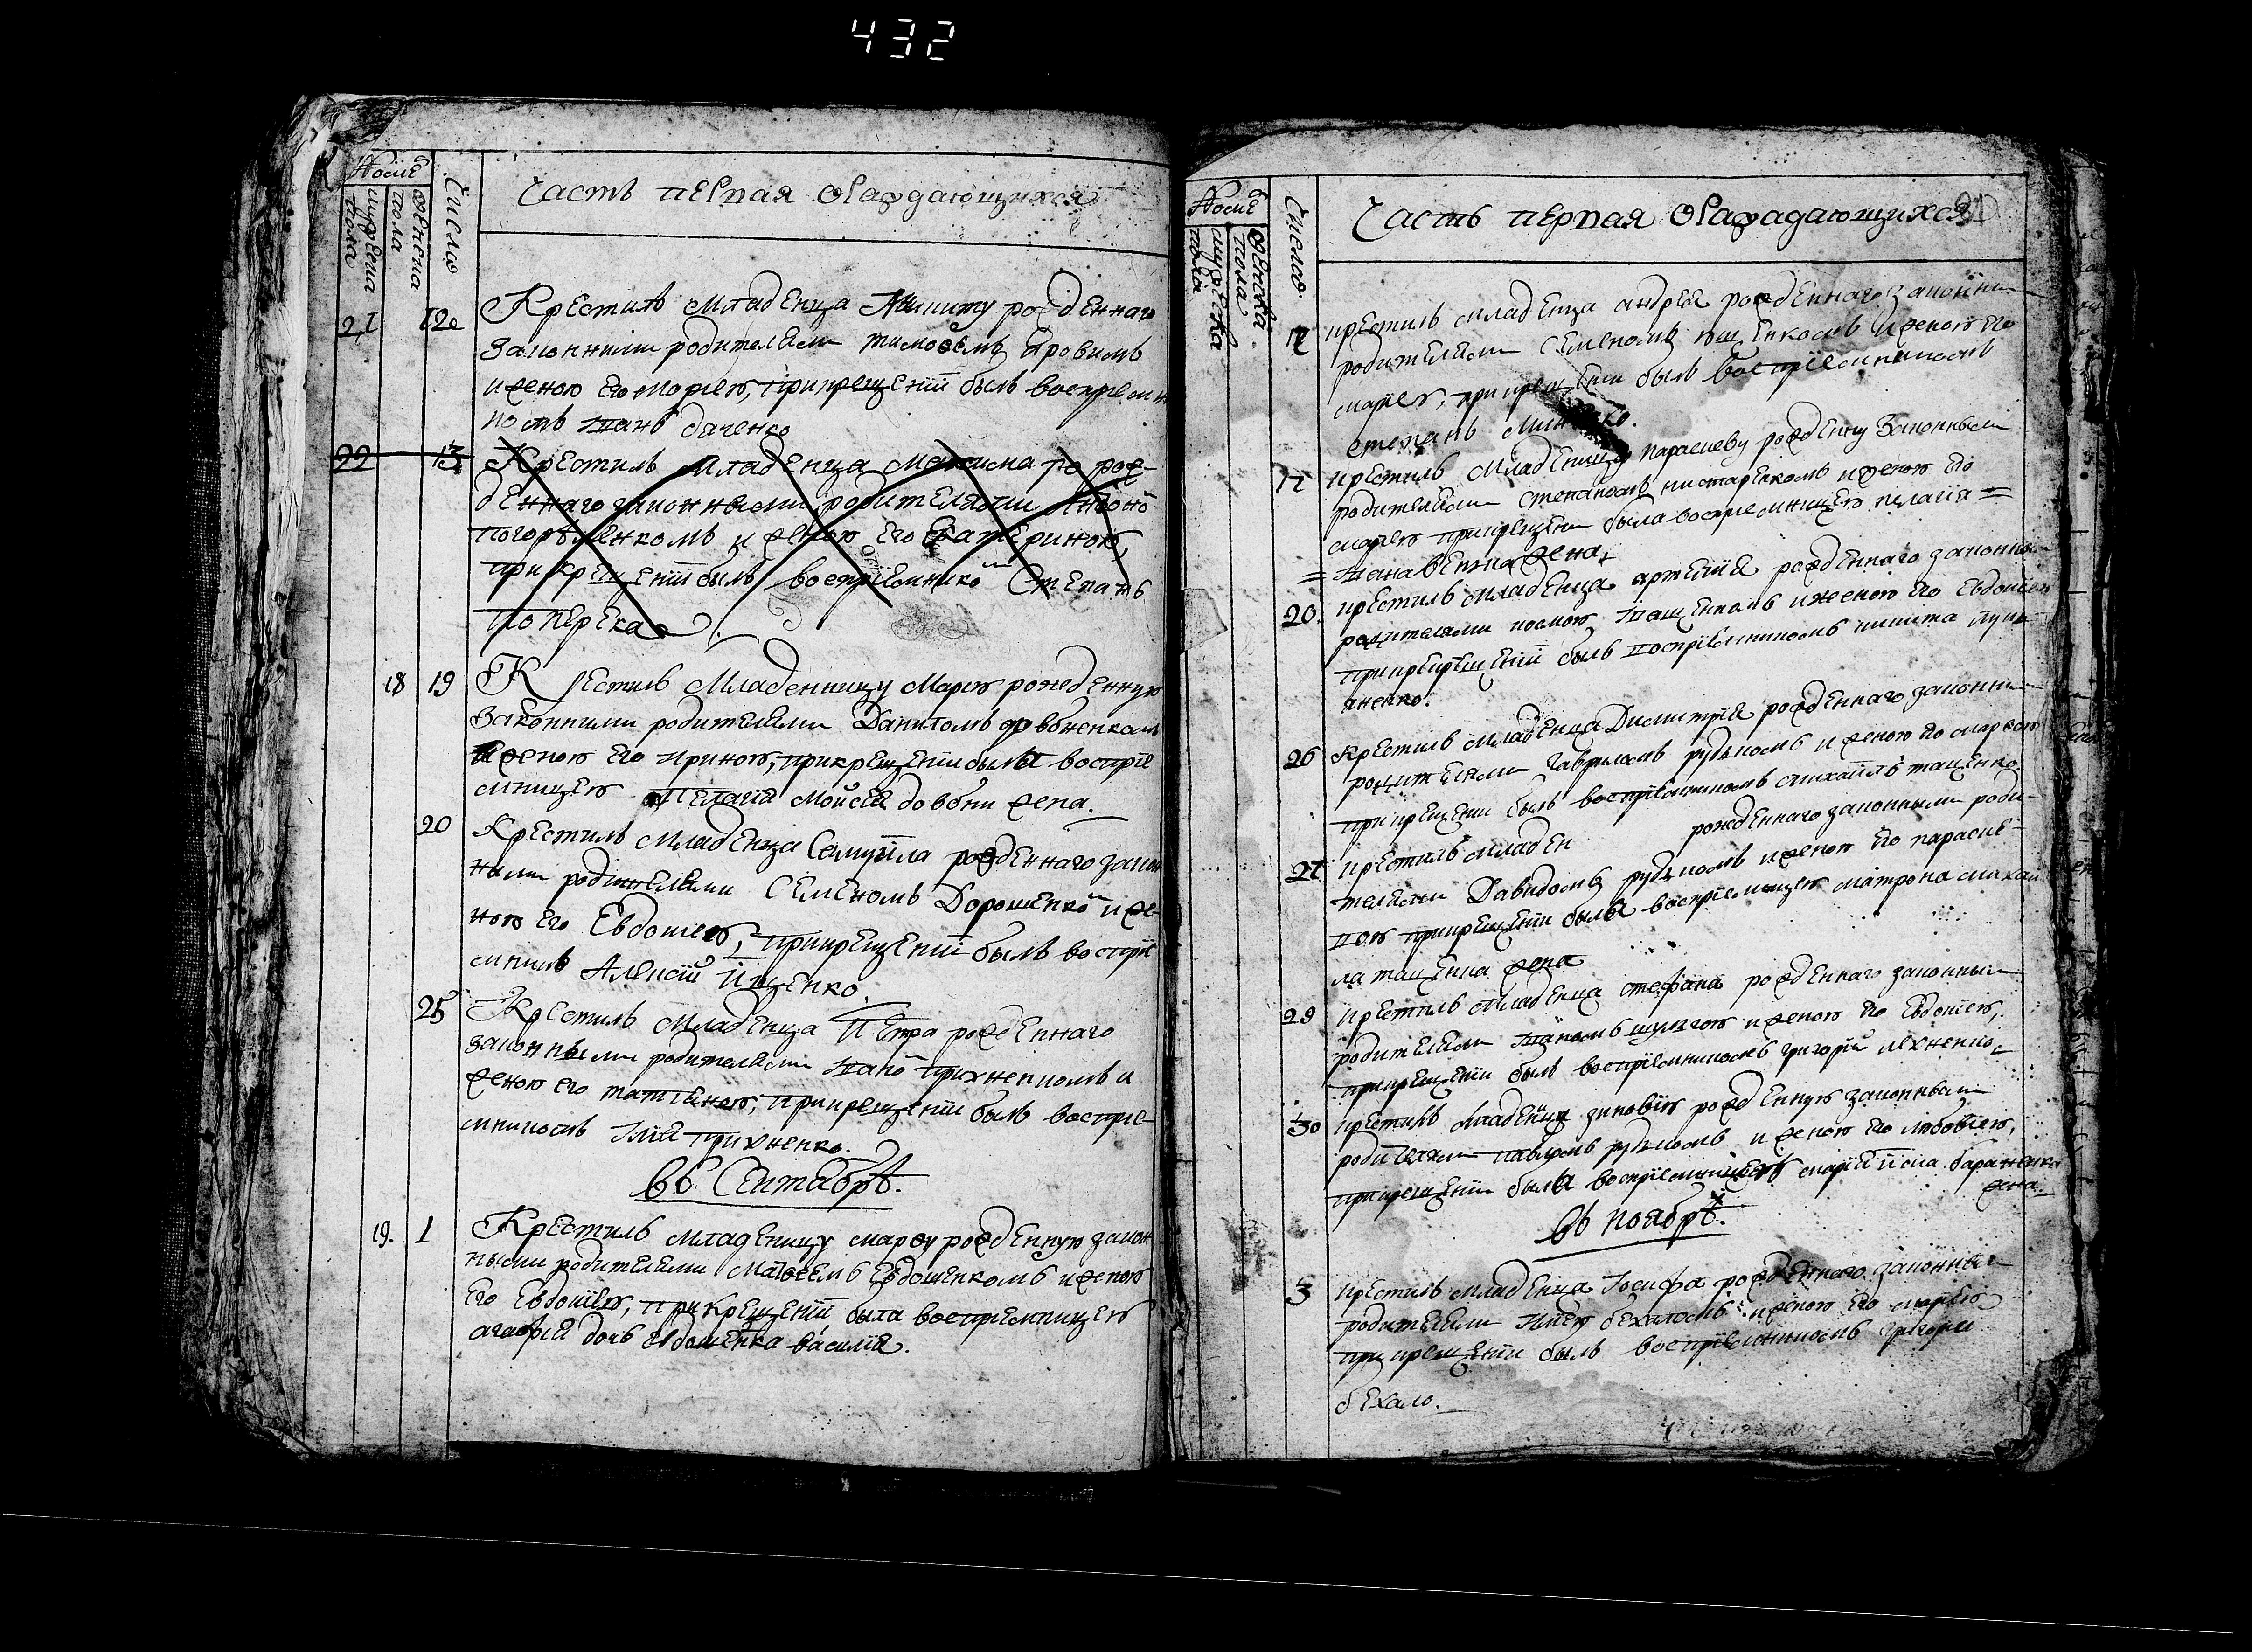 432
Часть первая ѡ раждающихся
Числа
женска пола
мужеска пола
21 12
Крестилъ младенца Никиту рожденнаго
законними родителями Тимоѳемъ
и женою его Мариею, при крещеніи былъ воспреемни
комъ Іванъ
22 13
Крестилъ младенца Максима рож-
деннаго законными родителями Антоно
погорѣленкомъ и женою его Екатериною,
при крещеніи былъ воспріемнико Степанъ
поперека
18 19
Крестилъ младенницу Марію рожденную
законними родителями Даниломъ довбненкомъ
и женою его Ириною, при крещеніи была воспріе
мницею Пелагія Мойсея довбни жена.
20
Крестилъ младенца Самуила рожденнаго закон
ными родителями Семеномъ Дорошенко и же-
ною его Евдокіею, при крещеніи былъ воспріе
мникъ Алексій Іщенко.
25
Крестилъ младенца Петра рожденнаго
законными родителями Івано Прихненкомъ и
женою его татіяною, при крещеніи былъ воспріе-
мникомъ Ілія прихненко.
въ Сентябрѣ.
19. 1
Крестилъ младеницу марѳу рожденную закон
ными родителями Матѳеемъ Евдошенкомъ и женою
его Евдокіею, при крещеніи была воспріемницею
агафія дочь Евдошенка василія.
Часть первая ѡ раждающихся
Числа
женска пола
мужеска пола
12
крестилъ младенца андрея рожденнаго законними
родителями Семеномъ и женою его
маріею, при крещеніи былъ воспріемникомъ
степанъ
17
крестилъ младеницу параскеву рожденну законными
родителями степаномъ и женою его
маріею при крещеніи была воспріемницею пелагія
жена.
20.
крестилъ младенца артемія рожденнаго законни
родителями космою Іващенкомъ и женою его Евдокіею
при крещеніи былъ воспріемникомъ никита лукь
яненко.
26
крестилъ младенца Димитрія рожденнаго законними
родителями Гавриломъ рудькомъ и женою его марѳою
при крещеніи былъ воспріемникомъ михаилъ тащенко.
27
крестилъ младен рожденнаго законными роди-
телями Давидомъ рудькомъ и женою его параске-
вою при крещеніи была воспріемницею матрона михаи
ла тащенка жена
29
крестилъ младенца стефана рожденнаго законными
родителями Іваномъ шулгою и женою его Евдокіею,
при крещеніи былъ воспріемникомъ григорій
30
крестилъ младеницу зиновію рожденную законными
родителями рудькомъ и женою его любовію,
при крещеніи была воспріемницею марія
жена.
въ ноябрѣ.
3
крестилъ младенца Іосифа рожденнаго законными
родителями Іліею бехаломъ и женою его маріею
при крещеніи былъ воспріемникомъ григорій
бехало.